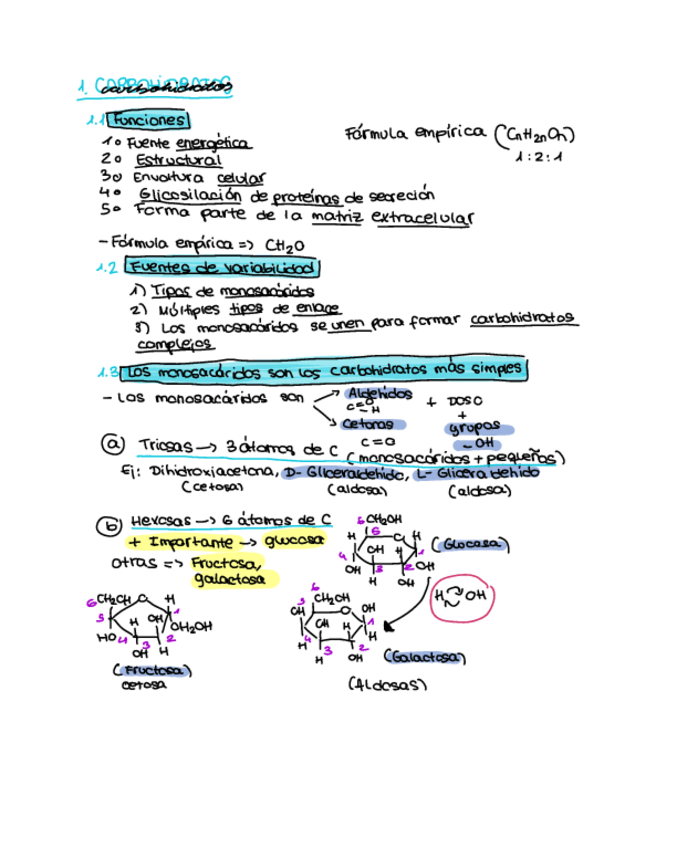 1. CARBOHIDRATOS
carbohidratos
1.1 Funciones
Fórmula empírica (CnH2nOn)
1:2:1
1º Fuente energética
2º Estructural
3º Envoltura celular
4º Glicosilación de proteínas de secreción
5º Forma parte de la matriz extracelular
- Fórmula empírica => CH2O
1.2 Fuentes de variabilidad
1) Tipos de monosacáridos
2) Múltiples tipos de enlace
3) Los monosacáridos se unen para formar carbohidratos
complejos
1.3 Los monosacáridos son los carbohidratos más simples
- Los monosacáridos son
Aldehidos
C=O
-H
Cetonas
C=O
+ DOS O
+
grupos
-OH
a) Triosas → 3 átomos de C (monosacáridos + pequeños)
Ej: Dihidroxiacetona, D-Gliceraldehido, L-Gliceraldehido
(cetosa) (aldosa) (aldosa)
b) Hexosas → 6 átomos de C
+ Importante → glucosa
otras => Fructosa,
galactosa
6 CH2OH
H 5 O H
4 OH H 1
OH 3 2 OH
H OH
(Glucosa)
H OH
6 CH2OH O H
5 H OH 1
HO 4 3 2 CH2OH
OH H
(Fructosa)
cetosa
6
5 CH2OH
OH O OH
OH H 1
H 4 3 2 H
H OH
(Galactosa)
(Aldosas)